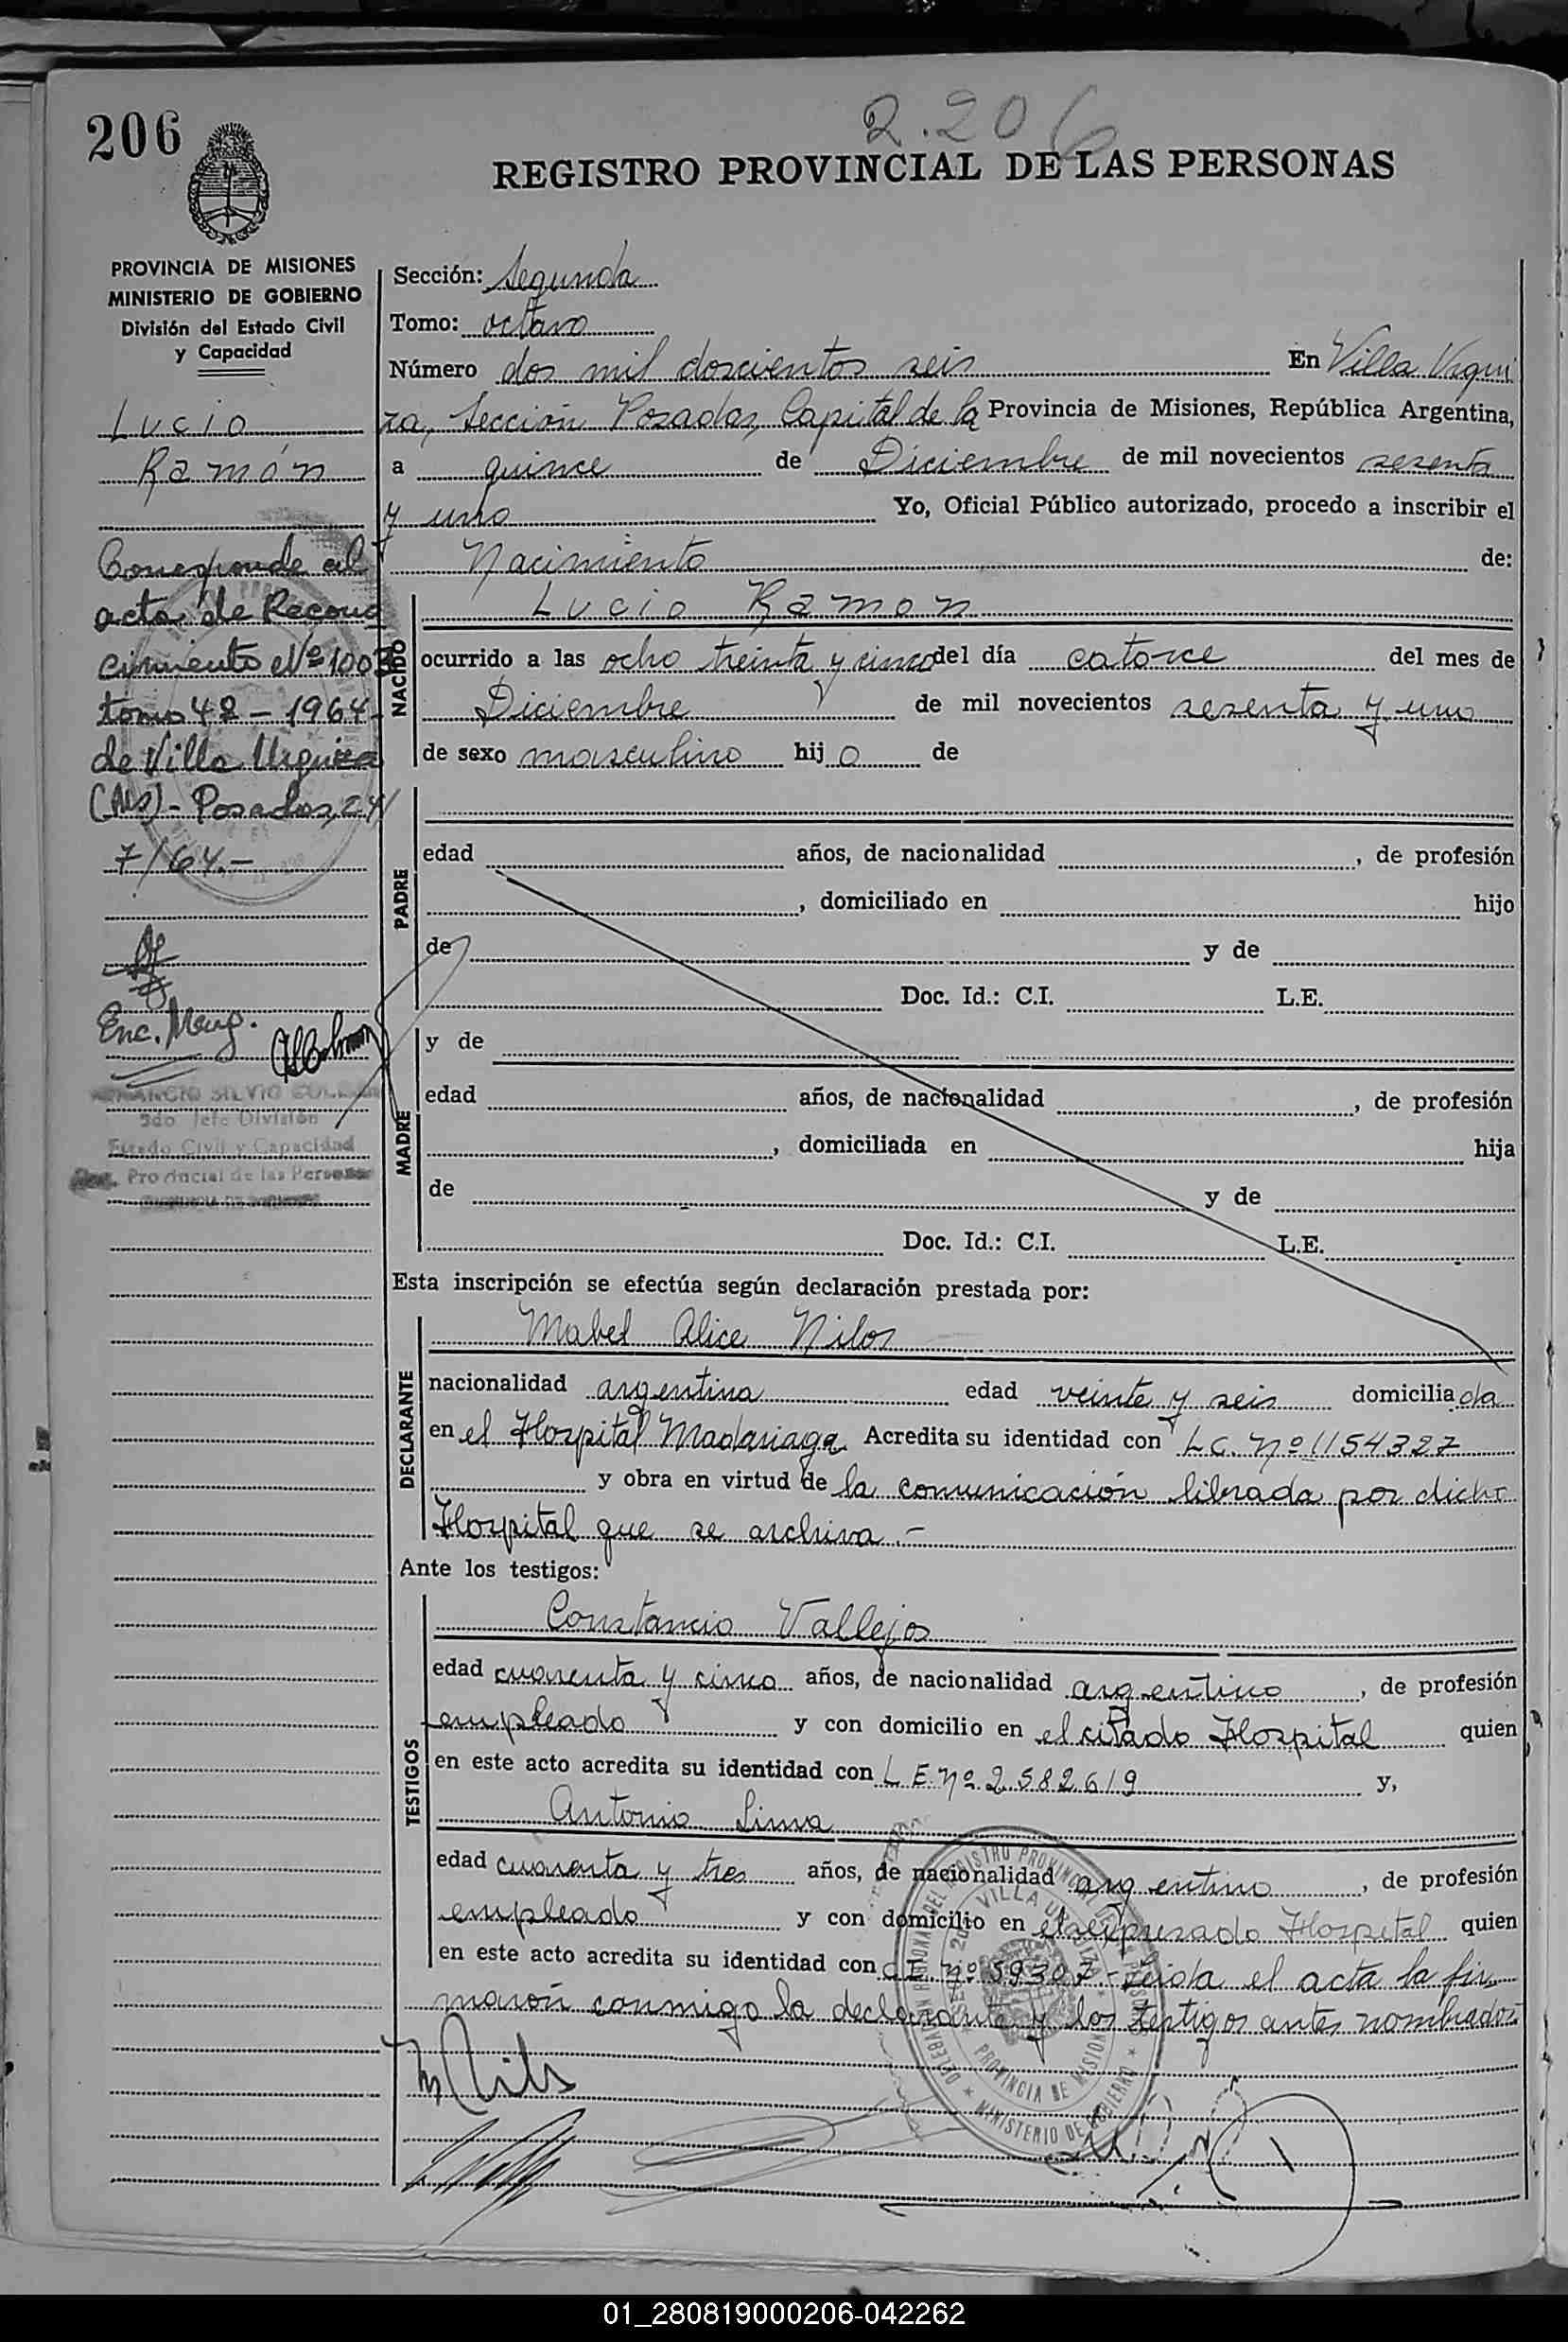 2.206
206
REGISTRO PROVINCIAL DE LAS PERSONAS
PROVINCIA DE MISIONES
MINISTERIO DE GOBIERNO
División del Estado Civil
y Capacidad
Lucio
Ramón
Corresponde al
acta de Recono
cimiento Nº 1003
tomo 42 - 1964-
de Villa Urquiza
(Ms) - Posadas, 24/
7/64.-
Enc. Mcug.
2do Jefe División
Estado Civil y Capacidad
Provincial de las Personas
Sección: Segunda
Tomo: octavo
Número dos mil doscientos seis En Villa Urqui
za, Sección Posadas, Capital de la Provincia de Misiones, República Argentina,
a quince de Diciembre de mil novecientos sesenta
y uno Yo, Oficial Público autorizado, procedo a inscribir el
Nacimiento de:
NACIDO
Lucio Ramon
ocurrido a las ocho treinta y cinco del día catorce del mes de
Diciembre de mil novecientos sesenta y uno
de sexo masculino hij o de
PADRE
edad años, de nacionalidad , de profesión
, domiciliado en hijo
de y de
Doc. Id.: C.I. L.E.
MADRE
y de
edad años, de nacionalidad , de profesión
, domiciliada en hija
de y de
Doc. Id.: C.I. L.E.
Esta inscripción se efectúa según declaración prestada por:
DECLARANTE
Mabel Alice Nilos
nacionalidad argentina edad veinte y seis domicilia da
en el Hospital Madariaga. Acredita su identidad con L.C. Nº 1154327
y obra en virtud de la comunicación librada por dicho
Hospital que se archiva.-
Ante los testigos:
TESTIGOS
Constancio Vallejos
edad cuarenta y cinco años, de nacionalidad argentino , de profesión
empleado y con domicilio en el citado Hospital quien
en este acto acredita su identidad con L.E. Nº 2.582.619 y,
Antonio Lima
edad cuarenta y tres años, de nacionalidad argentino , de profesión
empleado y con domicilio en el expresado Hospital quien
en este acto acredita su identidad con C.I. Nº 59307 - Leida el acta la fir
maron conmigo la declarante y los testigos antes nombrados
DELEGACION REGIONAL DEL REGISTRO PROVINCIAL DE LAS PERSONAS
SEC. 2da. VILLA URQUIZA
PROVINCIA DE MISIONES
MINISTERIO DE GOBIERNO
01_280819000206-042262